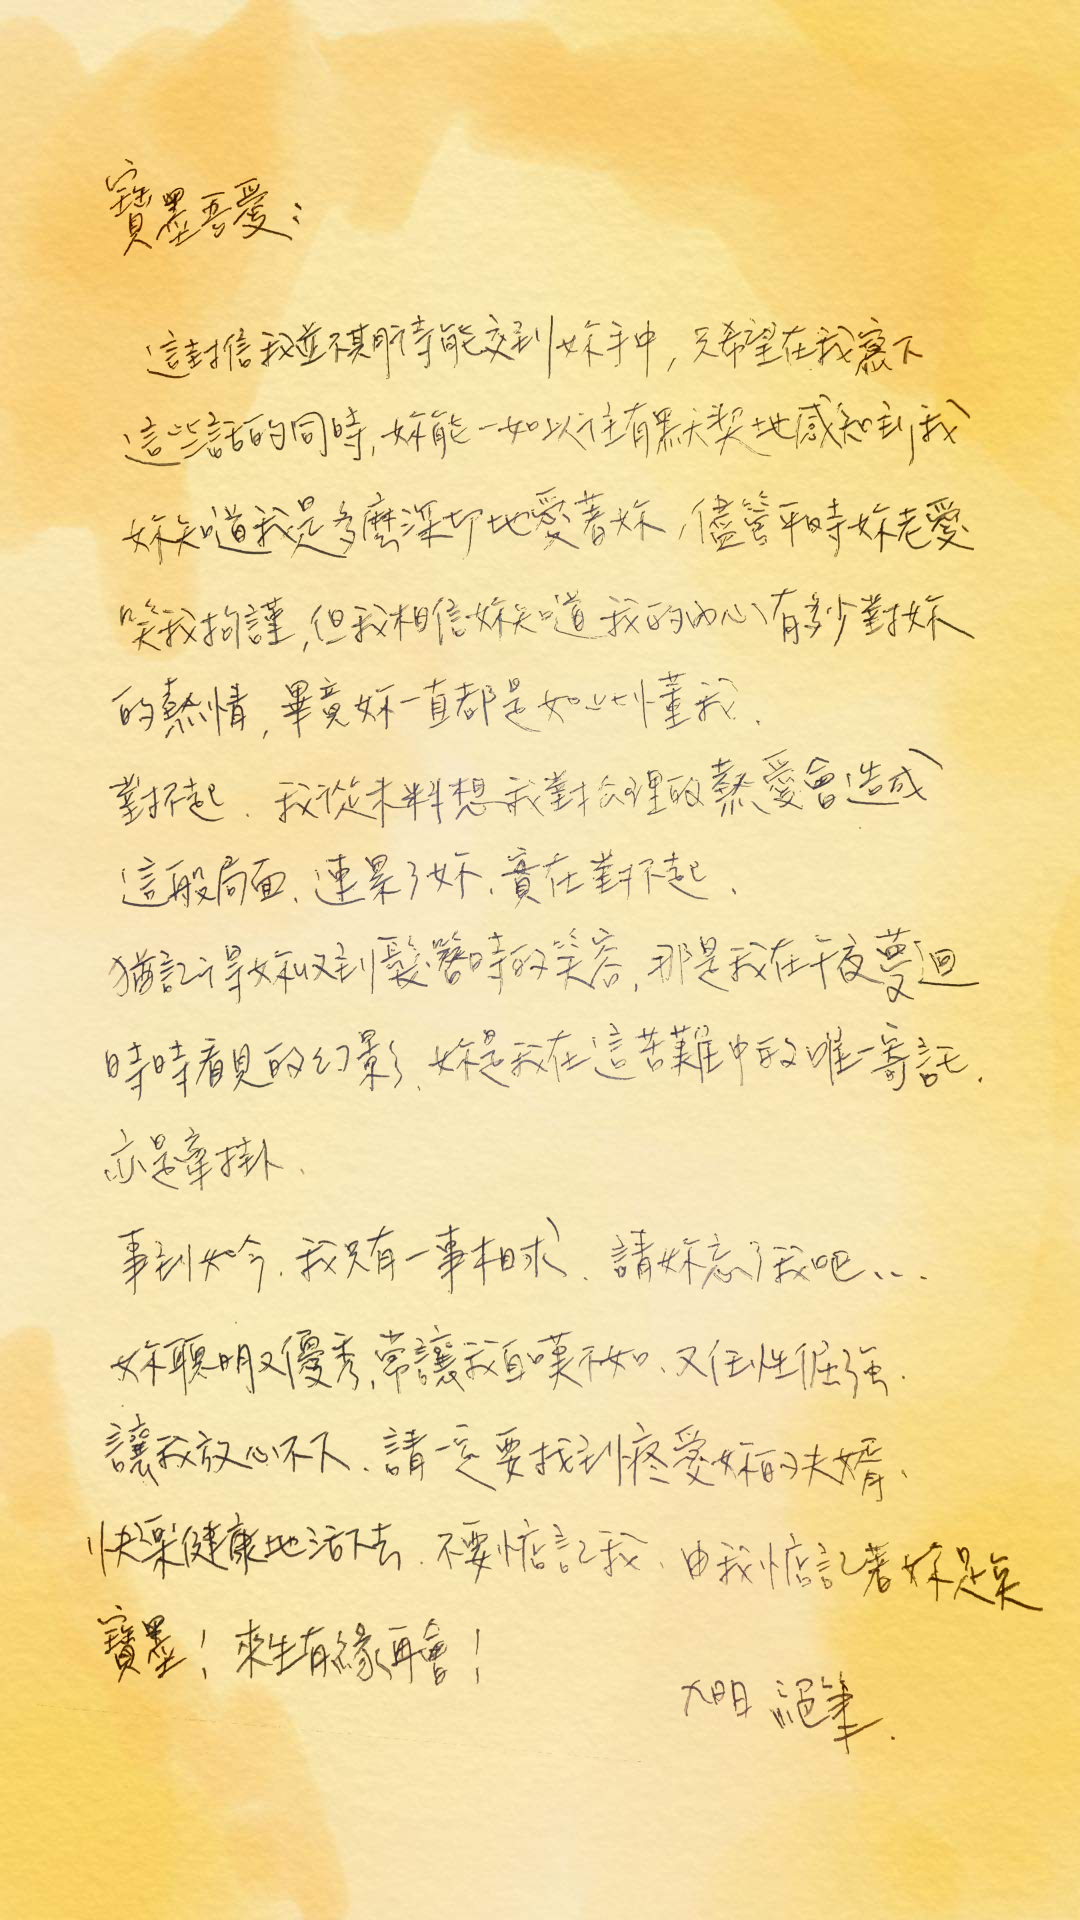 寶墨吾愛：
這封信我並不期待能交到妳手中，只希望在我寫下
這些話的同時，妳能一如以往有默契地感知到我
妳知道我是多麼深切地愛著妳，儘管平時妳老愛
笑我拘謹，但我相信妳知道我的內心有多少對妳
的熱情，畢竟妳一直都是如此懂我．
對不起．我從未料想我對公理的熱愛會造成
這般局面．連累了妳．實在對不起．
猶記得妳收到髮簪時的笑容，那是我在午夜夢迴
時時看見的幻影．妳是我在這苦難中的唯一寄託．
亦是牽掛．
事到如今．我只有一事相求．請妳忘了我吧...
妳聰明又優秀，常讓我自嘆不如．又任性倔強．
讓我放心不下．請一定要找到疼愛妳的夫婿．
快樂健康地活下去．不要惦記我．由我惦記著妳足矣
寶墨！來生有緣再會！
絕筆．